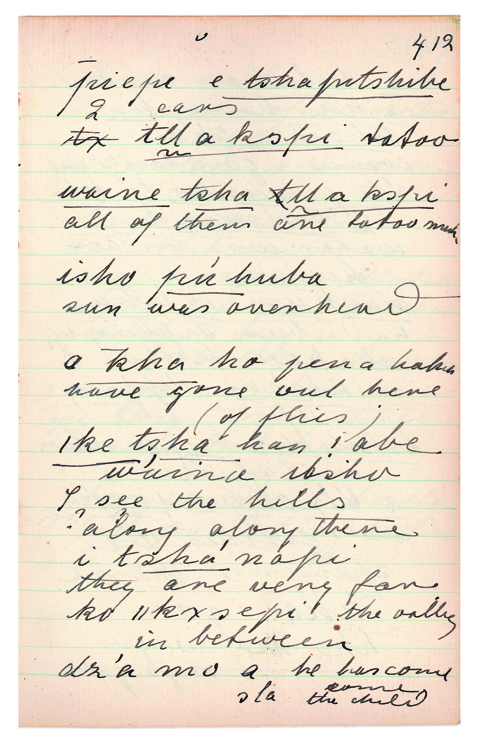 412
piepe e tshaputshibe
2 ears
tɬɬa kspi tatoo
waine tsha tɬɬa kspi
all of them are tatoo
isho púhuba
sun was overhead
a kha ho pena
have gone out here
(of flies)
ike tsha han i abe
waina itsho
I see the hills
along along there
i tshá napi
they are very far
ko ǁkxsepi the valley
in between
dz'a mo a he has come
sla the child
come